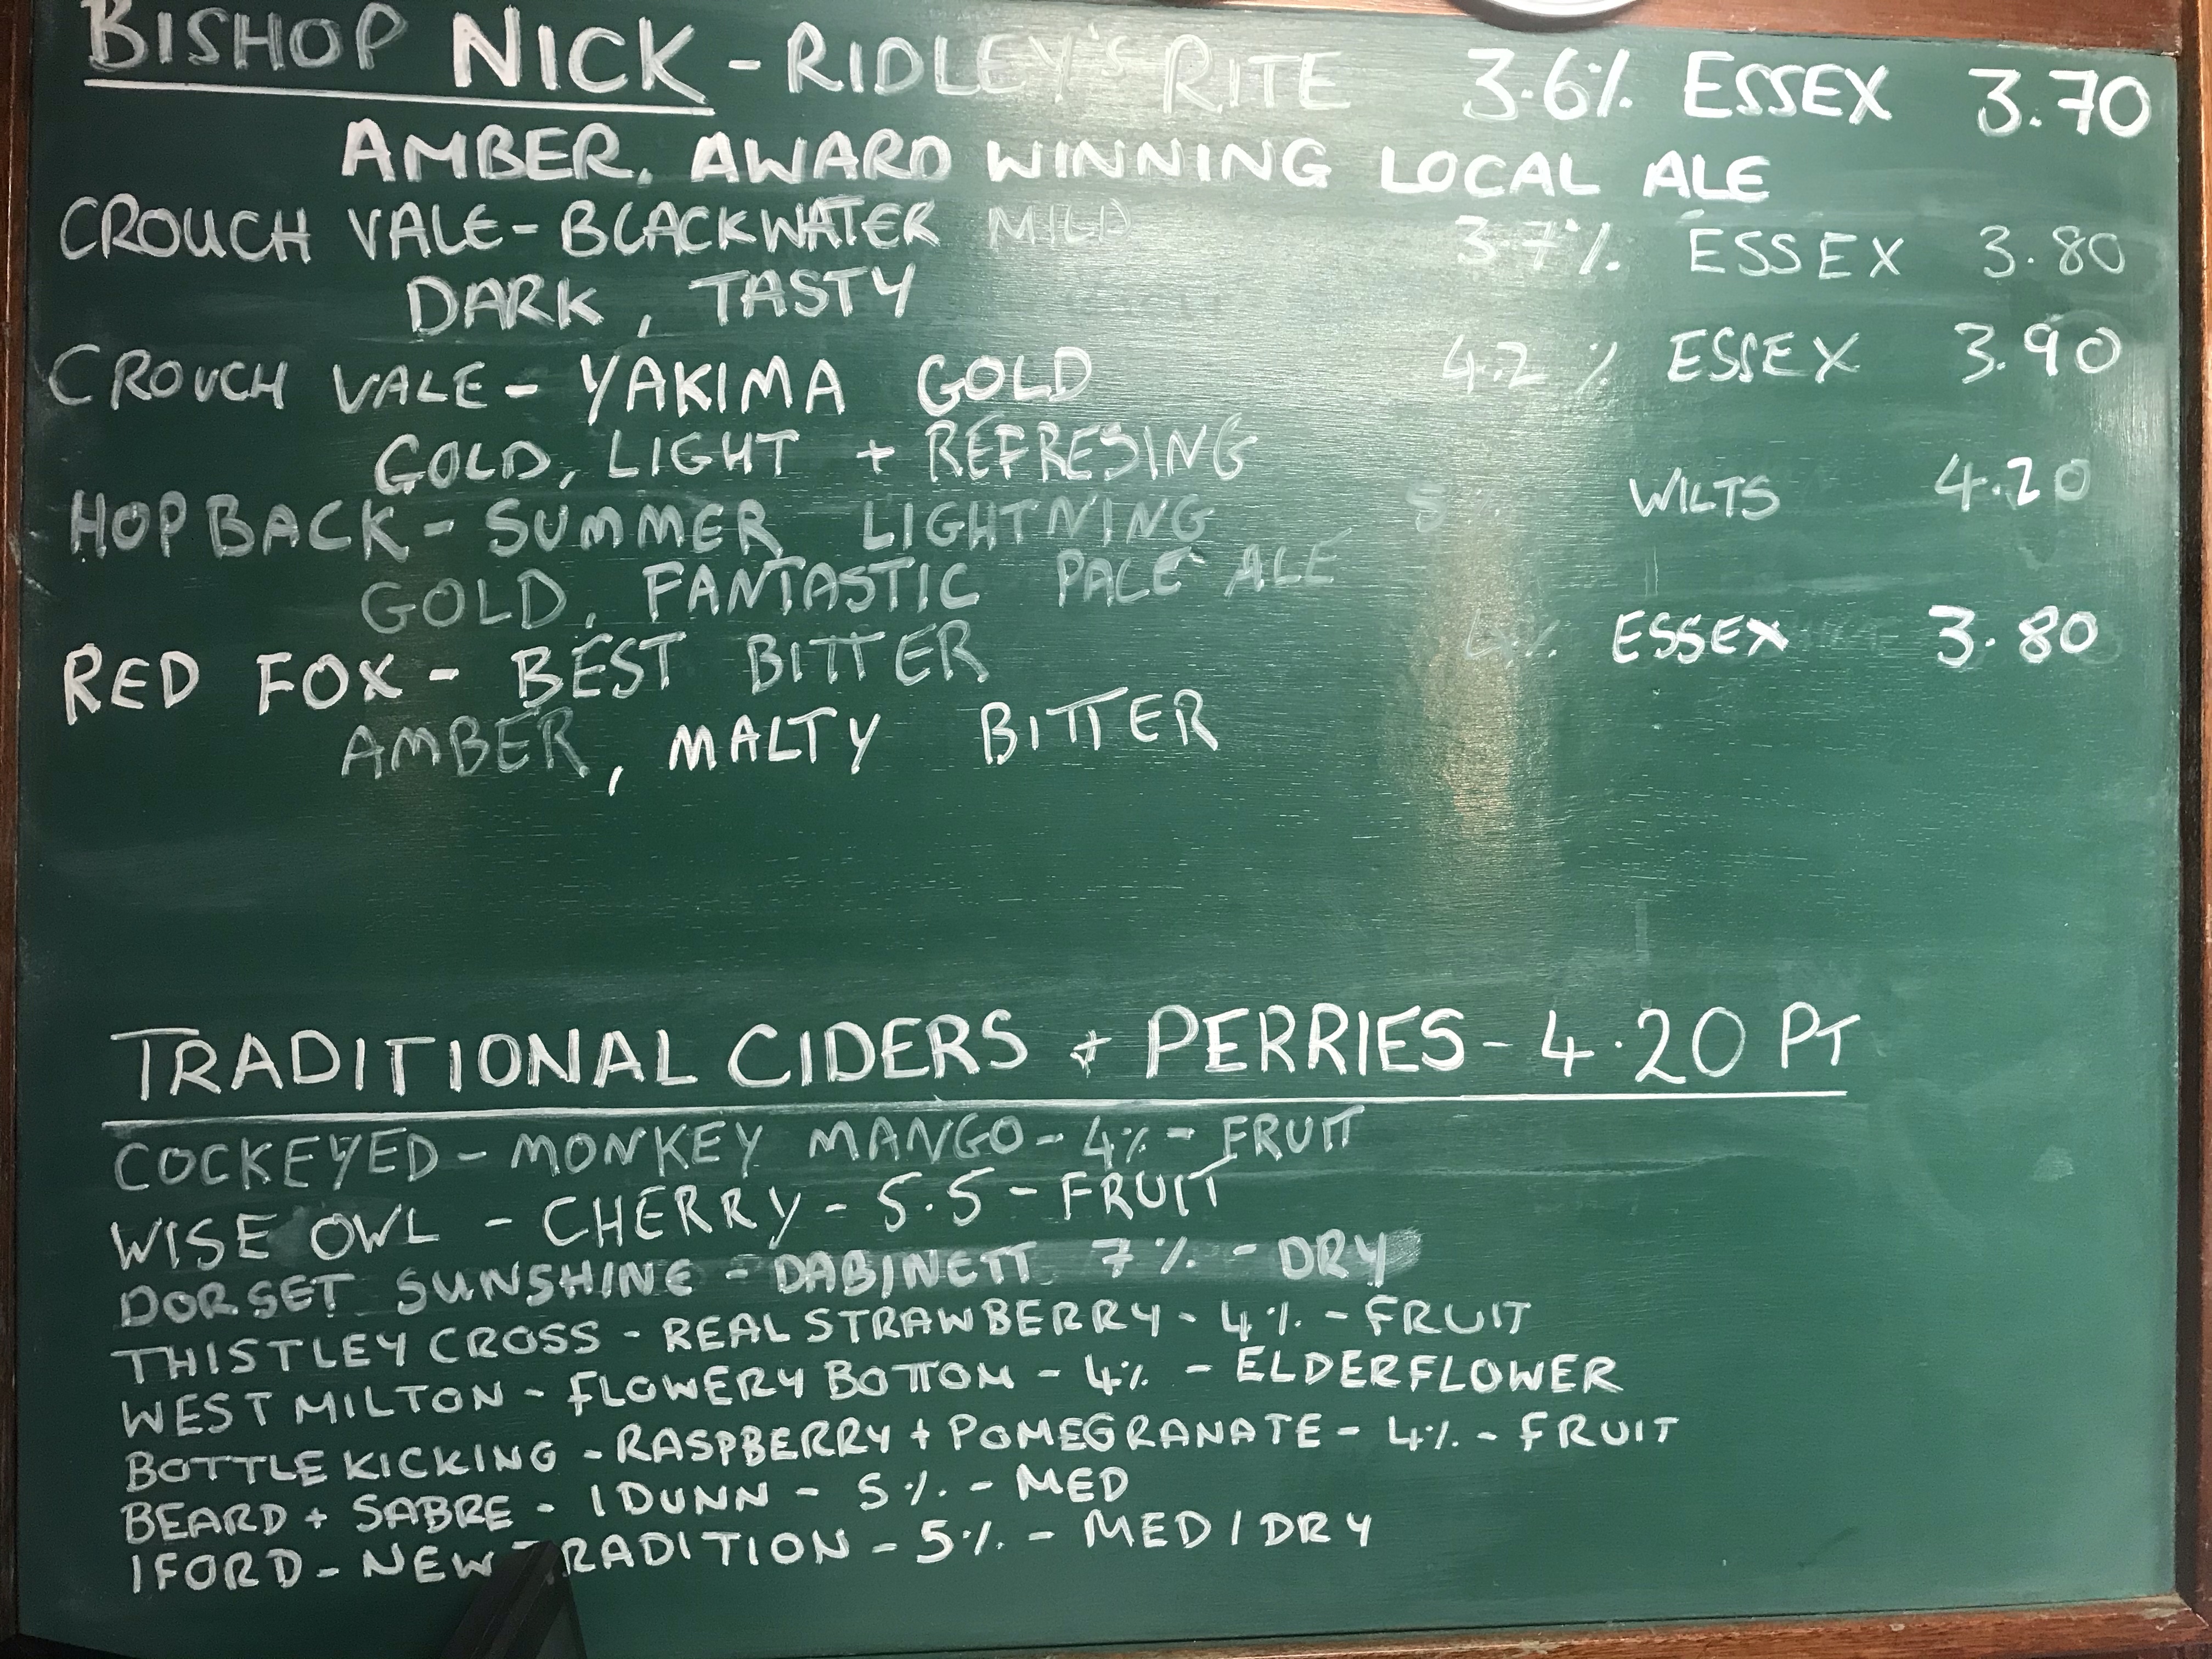 BISHOP NICK - RIDLEY'S RITE 3.6% ESSEX 3.70
AMBER, AWARD WINNING LOCAL ALE
CROUCH VALE - BLACKWATER MILD 3.7% ESSEX 3.80
DARK, TASTY
CROUCH VALE - YAKIMA GOLD 4.2% ESSEX 3.90
GOLD, LIGHT + REFRESING
HOP BACK - SUMMER LIGHTNING 5% WILTS 4.20
GOLD, FANTASTIC PALE ALE
RED FOX - BEST BITTER 4% ESSEX 3.80
AMBER, MALTY BITTER
TRADITIONAL CIDERS + PERRIES - 4.20 PT
COCKEYED - MONKEY MANGO - 4% - FRUIT
WISE OWL - CHERRY - 5.5 - FRUIT
DORSET SUNSHINE - DABINETT 7% - DRY
THISTLEY CROSS - REAL STRAWBERRY - 4% - FRUIT
WEST MILTON - FLOWERY BOTTOM - 4% - ELDERFLOWER
BOTTLE KICKING - RASPBERRY + POMEGRANATE - 4% - FRUIT
BEARD + SABRE - IDUNN - 5% - MED
IFORD - NEW TRADITION - 5% - MED/DRY